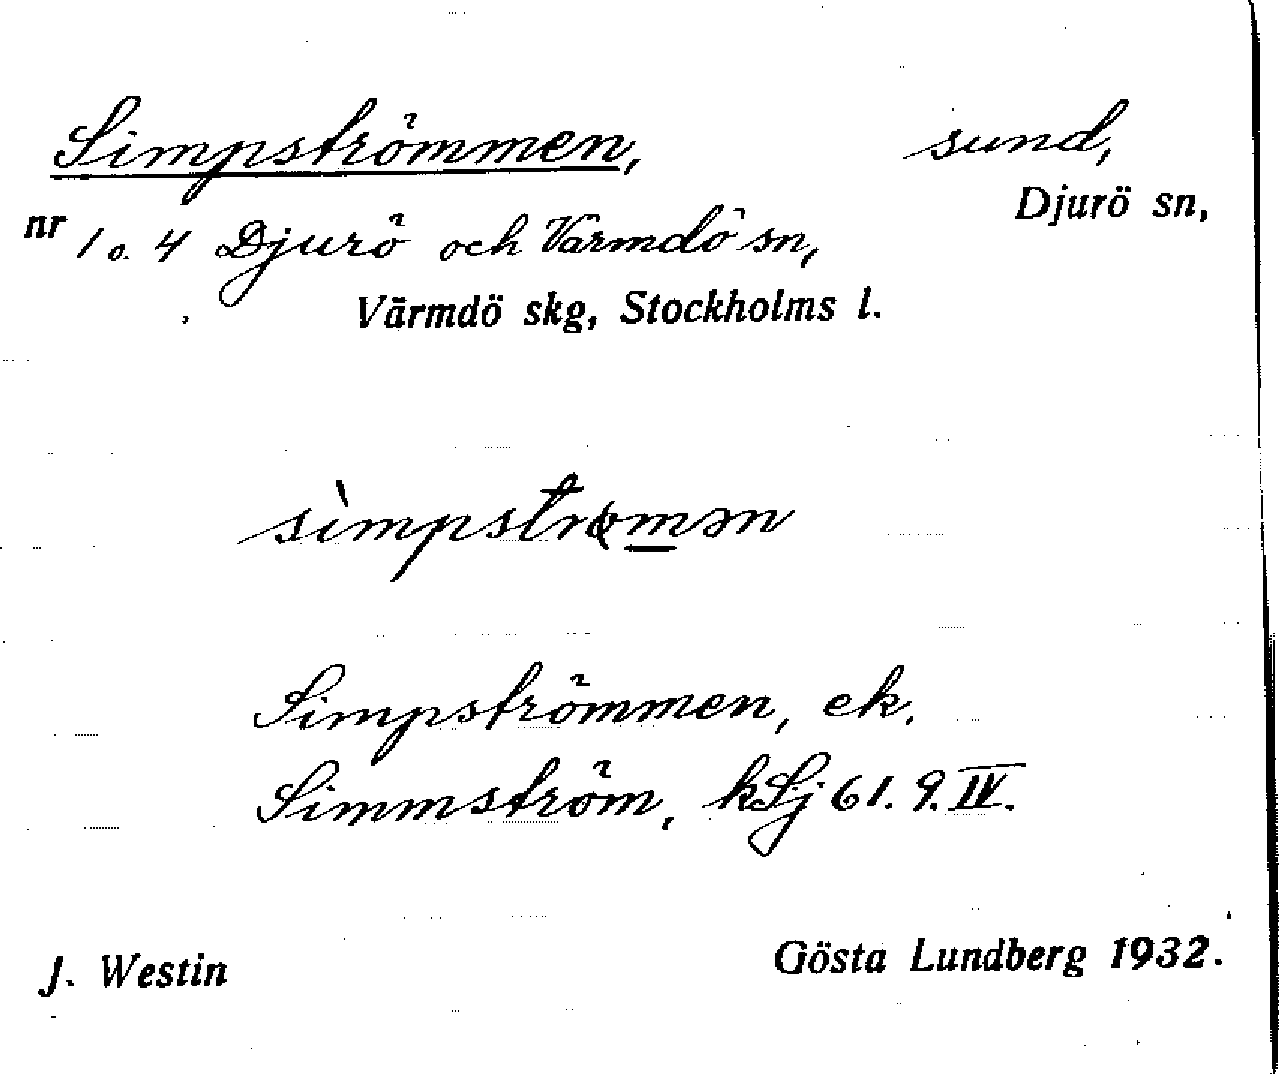 Simpströmmen, sund,
Djurö sn,
nr 1 o. 4 Djurö och Värmdö sn,
Värmdö skg, Stockholms l.
sìmpstrømən
Simpströmmen, ek.
Simmström, kSj 61. 9. IV.
J. Westin Gösta Lundberg 1932.